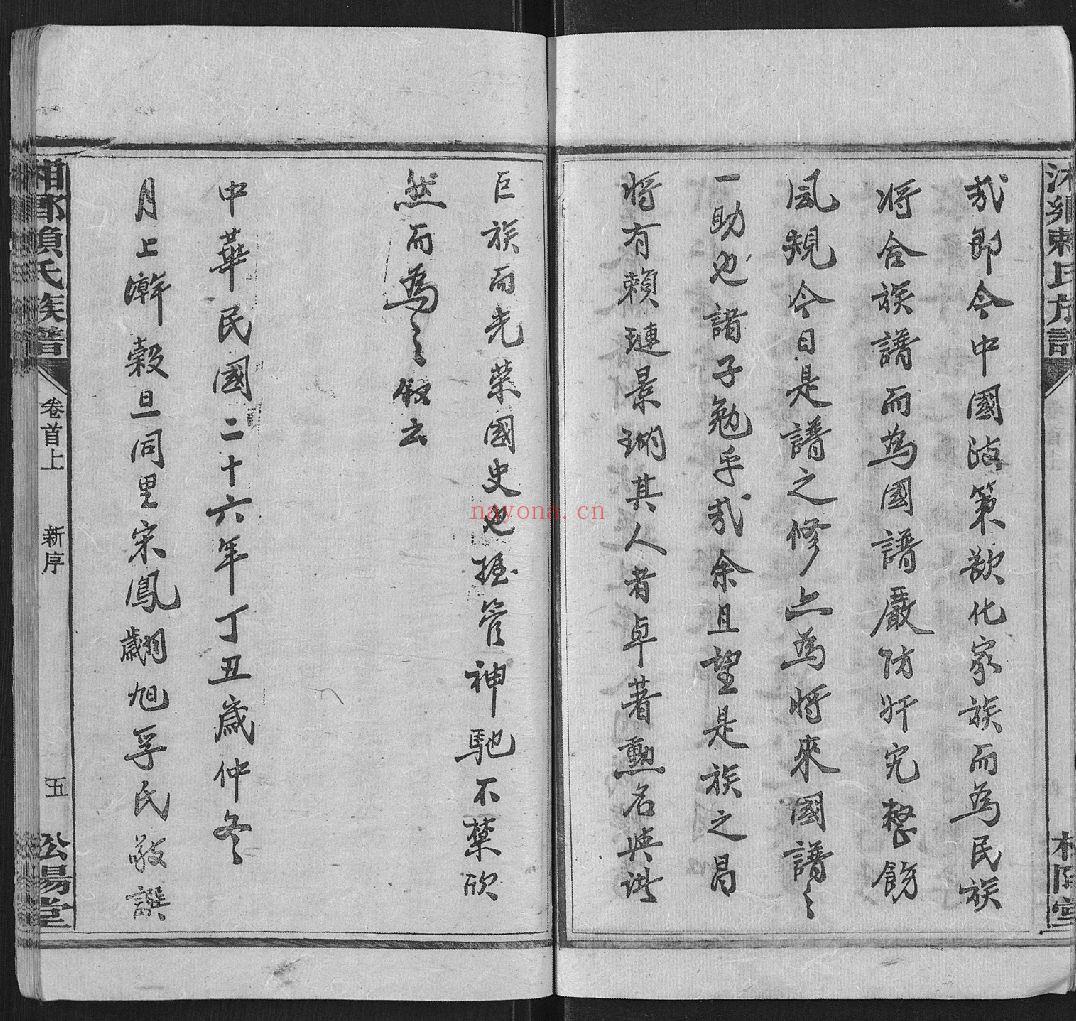 哉即今中國政策欲化家族而為民族
將合族譜而為國譜嚴防奸宄整飭
風規今日是譜之修亦為將來國譜之
一助也諸子勉乎哉余且望是族之昌
將有賴璉景瑚其人者卓著勲名與洪
巨族而光榮國史也握管神馳不禁欣
然而為之敘云
中華民國二十六年丁丑歲仲冬
月上澣穀旦同里宋鳳翽旭孚氏敬譔
氏族譜
卷首上
新序
五
松陽堂
nayona.cn